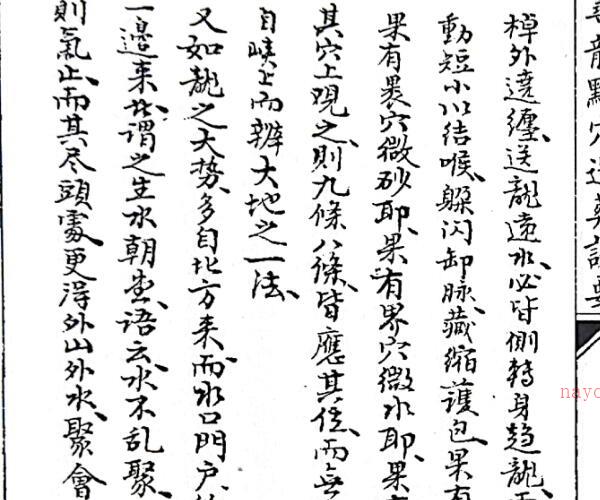 尋龍點穴造葬訣要
棹外遶纏送龍遠水必皆側轉身趋龍
動短小以结喉躲闪卸脉藏缩護包果有
果有裹穴微砂耶果有界穴微水耶果有
其穴上观之則九條八條皆應其伝而無
自峡上而辨大地之一法
又如龍之大势多自北方来而水口門户
一邊来此谓之生水朝堂语云水不乱聚
則氣止而其尽頭處更得外山外水聚會
nayo